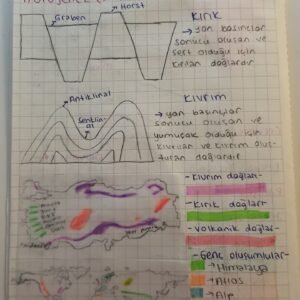 Horst
Graben
Kırık
→ yan basınçlar
sonucu oluşan ve
sert olduğu için
kırılan dağlardır
Antiklinal
Senklin
al
Kıvrım
→ yan basınçlar
sonucu oluşan ve
yumuşak olduğu için
kıvrılan ve kıvrım oluş-
turan dağlardır
- Kıvrım dağları -
- Kırık dağlar -
- Volkanik dağlar -
- Genç oluşumlular -
→ Himalaya
→ Atlas
→ Alp